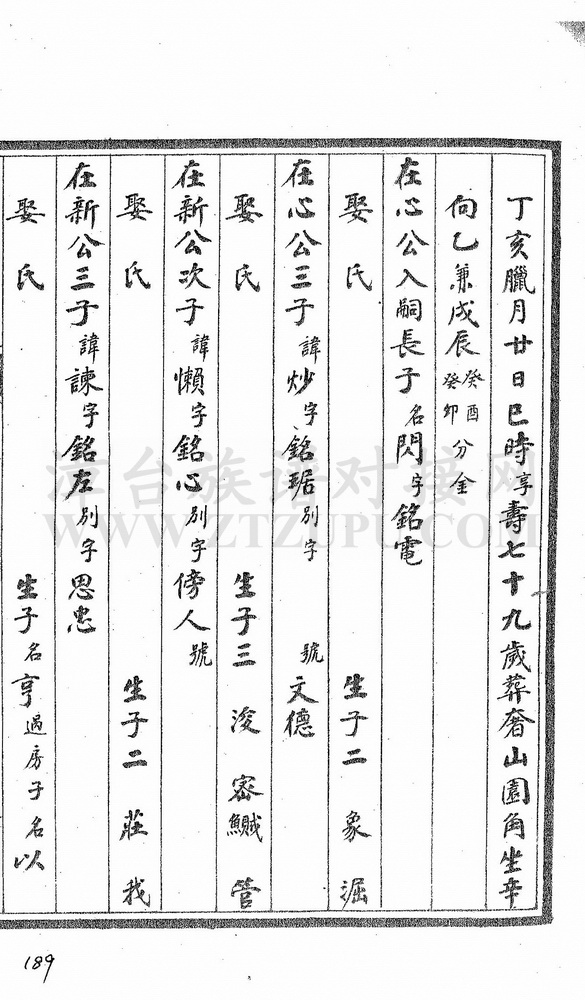 丁亥臘月廿日巳時享壽七十九歲葬奢山園角坐辛
向乙兼戌辰癸酉癸卯分金
在心公入嗣長子名閃字銘電
娶 氏 生子二 象 淈
在心公三子諱炒字銘琚別字 號文德
娶 氏 生子三 浚 密 鱡 管
在新公次子諱懶字銘心別字傍人號
娶 氏 生子二 莊 我
在新公三子諱諫字銘左別字思忠
娶 氏 生子名亨過房子名以
漳台族谱对接网
WWW.ZTZUPU.COM
189